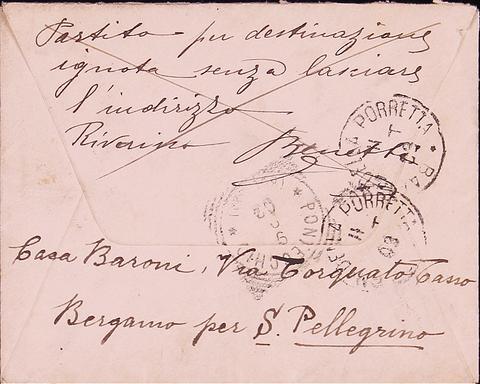 Partito - per destinazione
ignota senza lasciare
l'indirizzo
PORRETTA
PORRETTA
03
Casa Baroni, Via Torquato Tasso
Bergamo per S. Pellegrino